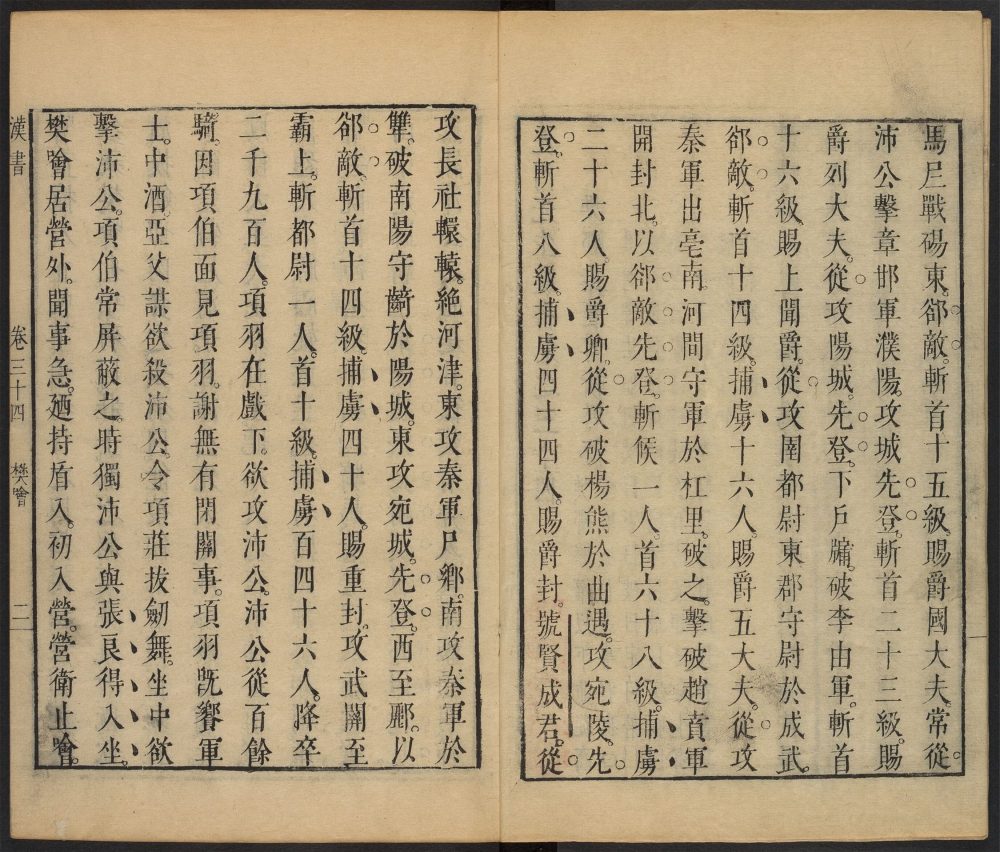 馬𡰥戰碭東。郤敵。斬首十五級。賜爵國大夫。常從
沛公擊章邯軍濮陽。攻城先登。斬首二十三級。賜
爵列大夫。從攻陽城。先登。下戶牖。破李由軍。斬首
十六級。賜上聞爵。從攻圉都尉東郡守尉於成武。
郤敵。斬首十四級。捕虜十六人。賜爵五大夫。從攻
秦軍出亳南。河間守軍於杠里。破之。擊破趙賁軍
開封北。以郤敵先登。斬候一人。首六十八級。捕虜
二十六人。賜爵卿。從攻破楊熊於曲遇。攻宛陵。先
登。斬首八級。捕虜四十四人。賜爵封。號賢成君。從
攻長社轘轅。絕河津。東攻秦軍尸鄉。南攻秦軍於
犨。破南陽守齮於陽城。東攻宛城。先登。西至酈。以
郤敵。斬首十四級。捕虜四十人。賜重封。攻武關。至
霸上。斬都尉一人。首十級。捕虜百四十六人。降卒
二千九百人。項羽在戲下。欲攻沛公。沛公從百餘
騎。因項伯面見項羽。謝無有閉關事。項羽旣饗軍
士。中酒。亞父謀欲殺沛公。令項莊拔劒舞。坐中欲
擊沛公。項伯常屏蔽之。時獨沛公與張良得入坐。
樊噲居營外。聞事急。廼持盾入。初入營。營衛止噲。
漢書 卷三十四 樊噲 二